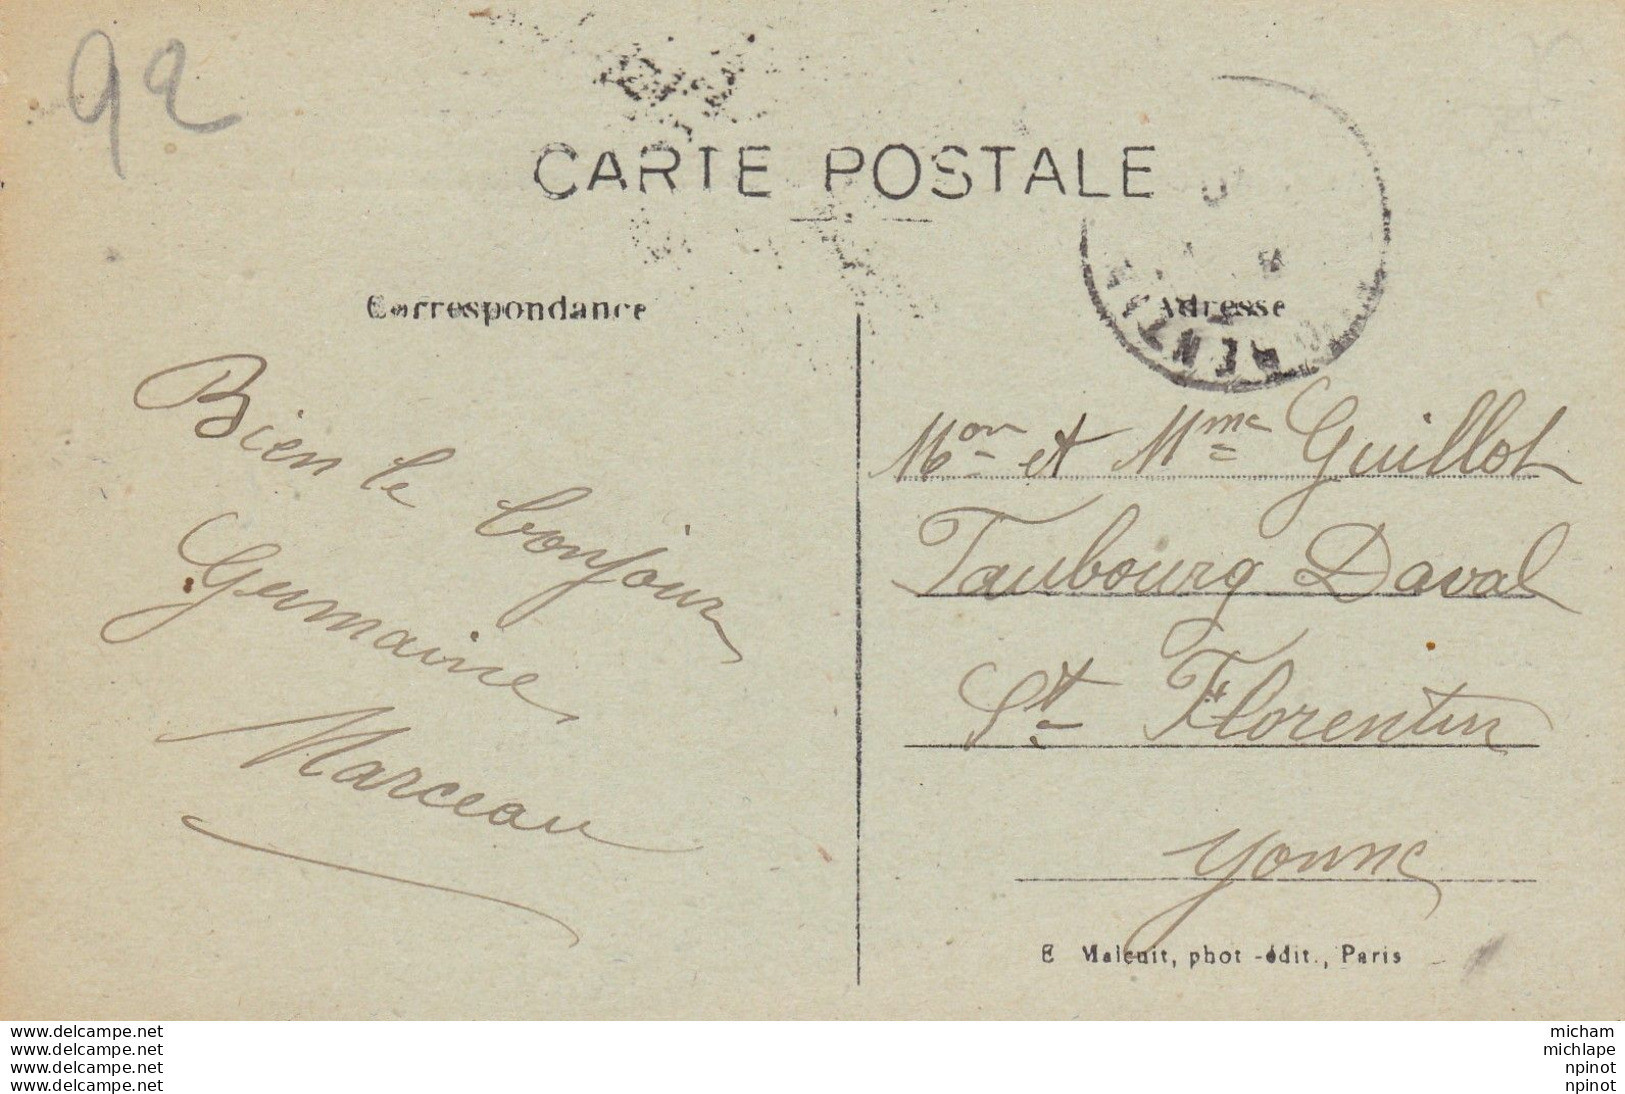 92
CARTE POSTALE
Correspondance
Adresse
Bien le bonjour
Germaine
Marceau
Mon et Mme Guillot
Faubourg Daval
St Florentin
Yonne
E Maleuit, phot -édit., Paris
www.delcampe.net
www.delcampe.net
www.delcampe.net
www.delcampe.net
micham
michlape
npinot
npinot